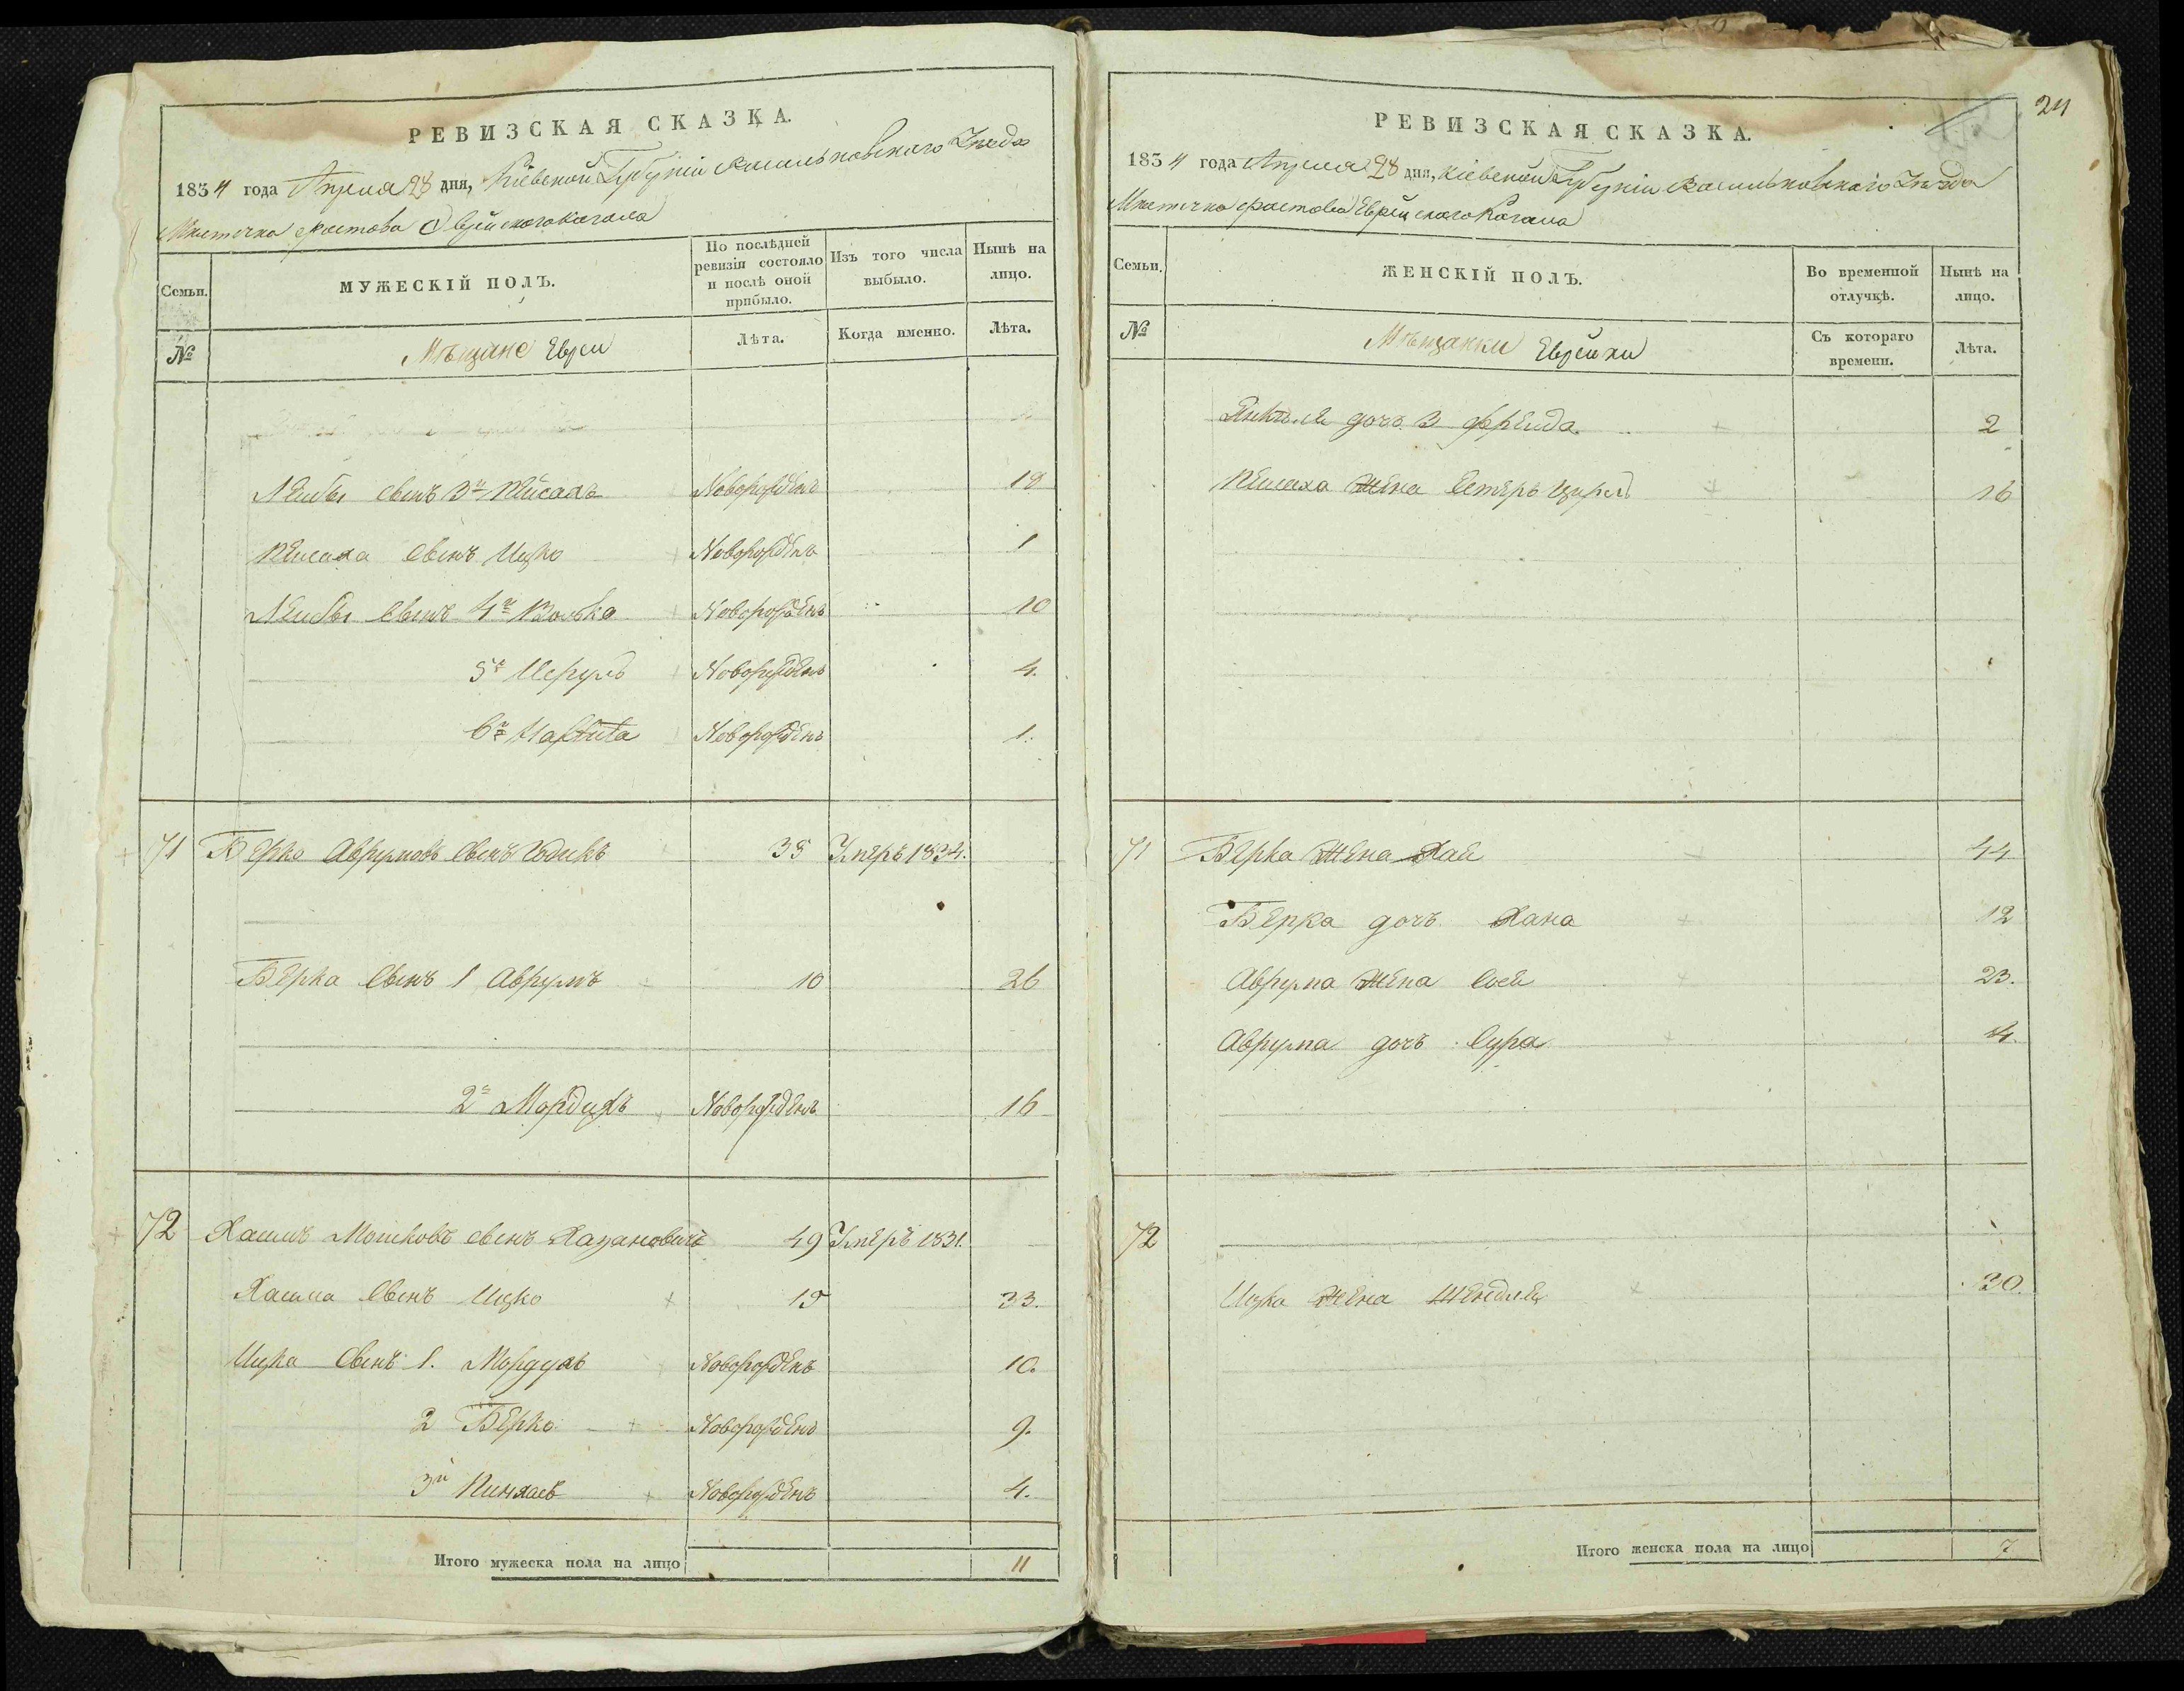 РЕВИЗСКАЯ СКАЗКА.
1834 года Апреля 28 дня, Кіевской Губерніи Васильковского Уезда
Местечка Фастова Еврейского Кагала
Семьи.
МУЖЕСКІЙ ПОЛЪ.
По послѣдней ревизіи состояло и послѣ оной прибыло.
Изъ того числа выбыло.
Нынѣ на лицо.
№
Мѣщане Евреи
Лѣта.
Когда именно.
Лѣта.
Лейбы сынъ 3й Пейсахъ Новорожденъ 19
Пейсаха сынъ Ицко Новорожденъ 1
Лейбы сынъ 4й Волько Новорожденъ 10
5й Исрулъ Новорожденъ 4.
6й Новорожденъ 1.
71 Берко Аврумовъ сынъ 35 Умеръ 1834.
Берка сынъ 1 Аврумъ 10 26
2й Мордухъ Новорожденъ 16
72 Хаимъ Мошковъ сынъ Хазановичъ 49 Умеръ 1831.
Хаима сынъ Ицко 15 33.
Ицка сынъ 1. Мордухъ Новорожденъ 10.
2й Берко Новорожденъ 9.
3й Пинхасъ Новорожденъ 4.
Итого мужеска пола на лицо 11
24
РЕВИЗСКАЯ СКАЗКА.
1834 года Апреля 28 дня, Кіевской Губерніи Васильковскаго Уезда
Местечка Фастова Еврейского Кагала
Семьи.
ЖЕНСКІЙ ПОЛЪ.
Во временной отлучкѣ.
Нынѣ на лицо.
№
Мѣщанки Еврейки
Съ котораго времени.
Лѣта.
Янкеля дочь 3 Фрейда 2
Пейсаха жена Естеръ 16
71 Берка жена Хая 44
Берка дочь Хана 12
Аврума жена Сося 23.
Аврума дочь Сура 4.
72
Ицка жена 30.
Итого женска пола на лицо 7